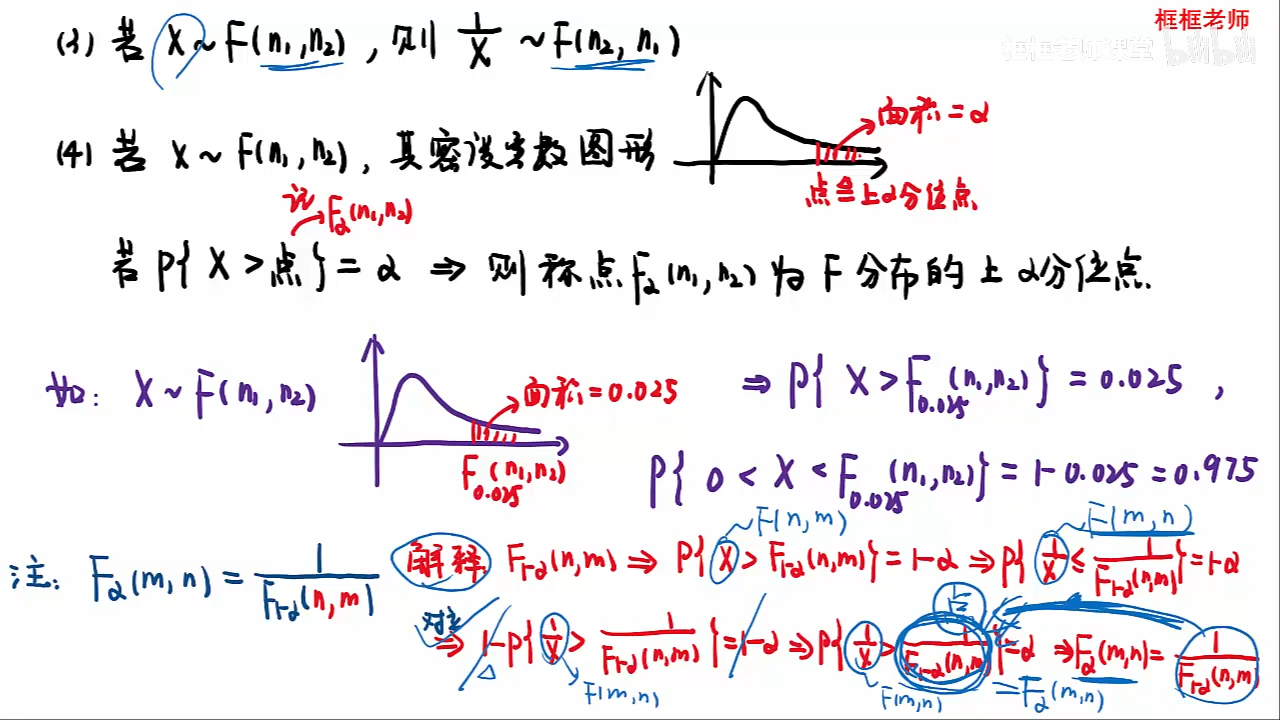 框框老师
框框老师课堂 bilibili
(3) 若 X~F(n₁,n₂), 则 1/X ~F(n₂,n₁)
(4) 若 X~F(n₁,n₂), 其密度函数图形
面积=α
点≙上α分位点
记 Fα(n₁,n₂)
若 P{X>点}=α ⇒ 则称点Fα(n₁,n₂)为F分布的上α分位点.
如: X~F(n₁,n₂)
面积=0.025
F0.025(n₁,n₂)
⇒ P{X>F0.025(n₁,n₂)}=0.025,
P{0<X<F0.025(n₁,n₂)}=1-0.025=0.975
~F(n,m) F(m,n)
注: Fα(m,n)=1/F1-α(n,m)
解释: F1-α(n,m) ⇒ P{X>F1-α(n,m)}=1-α ⇒ P{1/X≤1/F1-α(n,m)}=1-α
对立 点
⇒ 1-P{1/X>1/F1-α(n,m)}=1-α ⇒ P{1/X>1/F1-α(n,m)}=α ⇒ Fα(m,n)=1/F1-α(n,m)
F(m,n) F(m,n) =Fα(m,n)